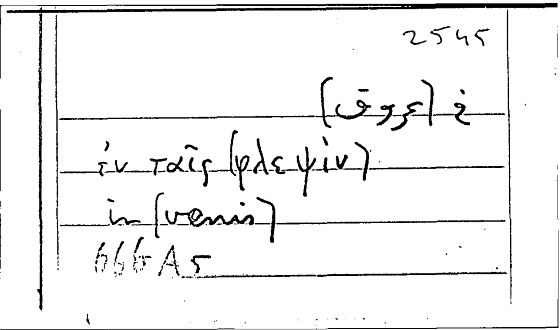 2545
ἐν ταῖς (φλεψὶν)
in (venis)
666 A 5